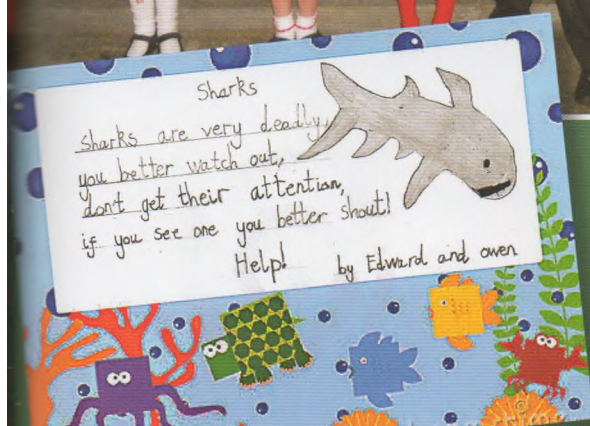 Sharks
Sharks are very deadly,
you better watch out,
dont get their attention,
if you see one you better shout!
Help!
by Edward and owen